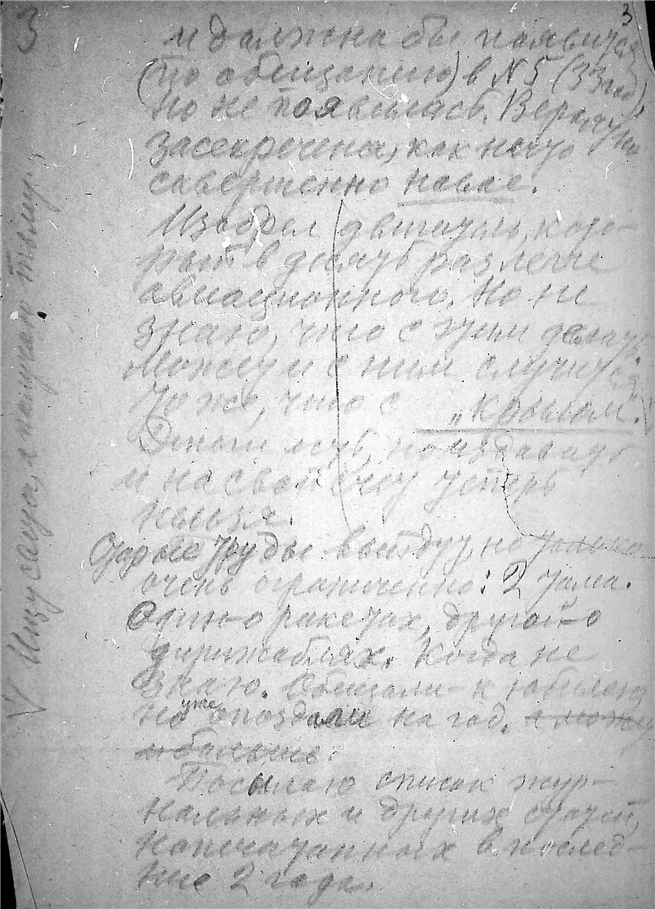 3
3
и должна бы появиться
(по обещанию) в N 5 (33 год),
но не появилась. Вероятно
засекречена, как нечто
совершенно новое.
Изобрел двигатель, кото-
рый в десять раз легче
авиационного. Но не
знаю, что с этим делать.
Может и с ним случится
то же, что с „крылом".
Этим
и на свой счет теперь
нельзя.
Старые труды выйдут, но только
очень ограниченно: 2 тома.
Один о ракетах, другой о
дирижаблях. Когда не
знаю. Обещали к юбилею
но уже опоздали на год, а может
и больше.
Посылаю список жур-
нальных и других статей,
напечатанных в послед-
ние 2 года.
V